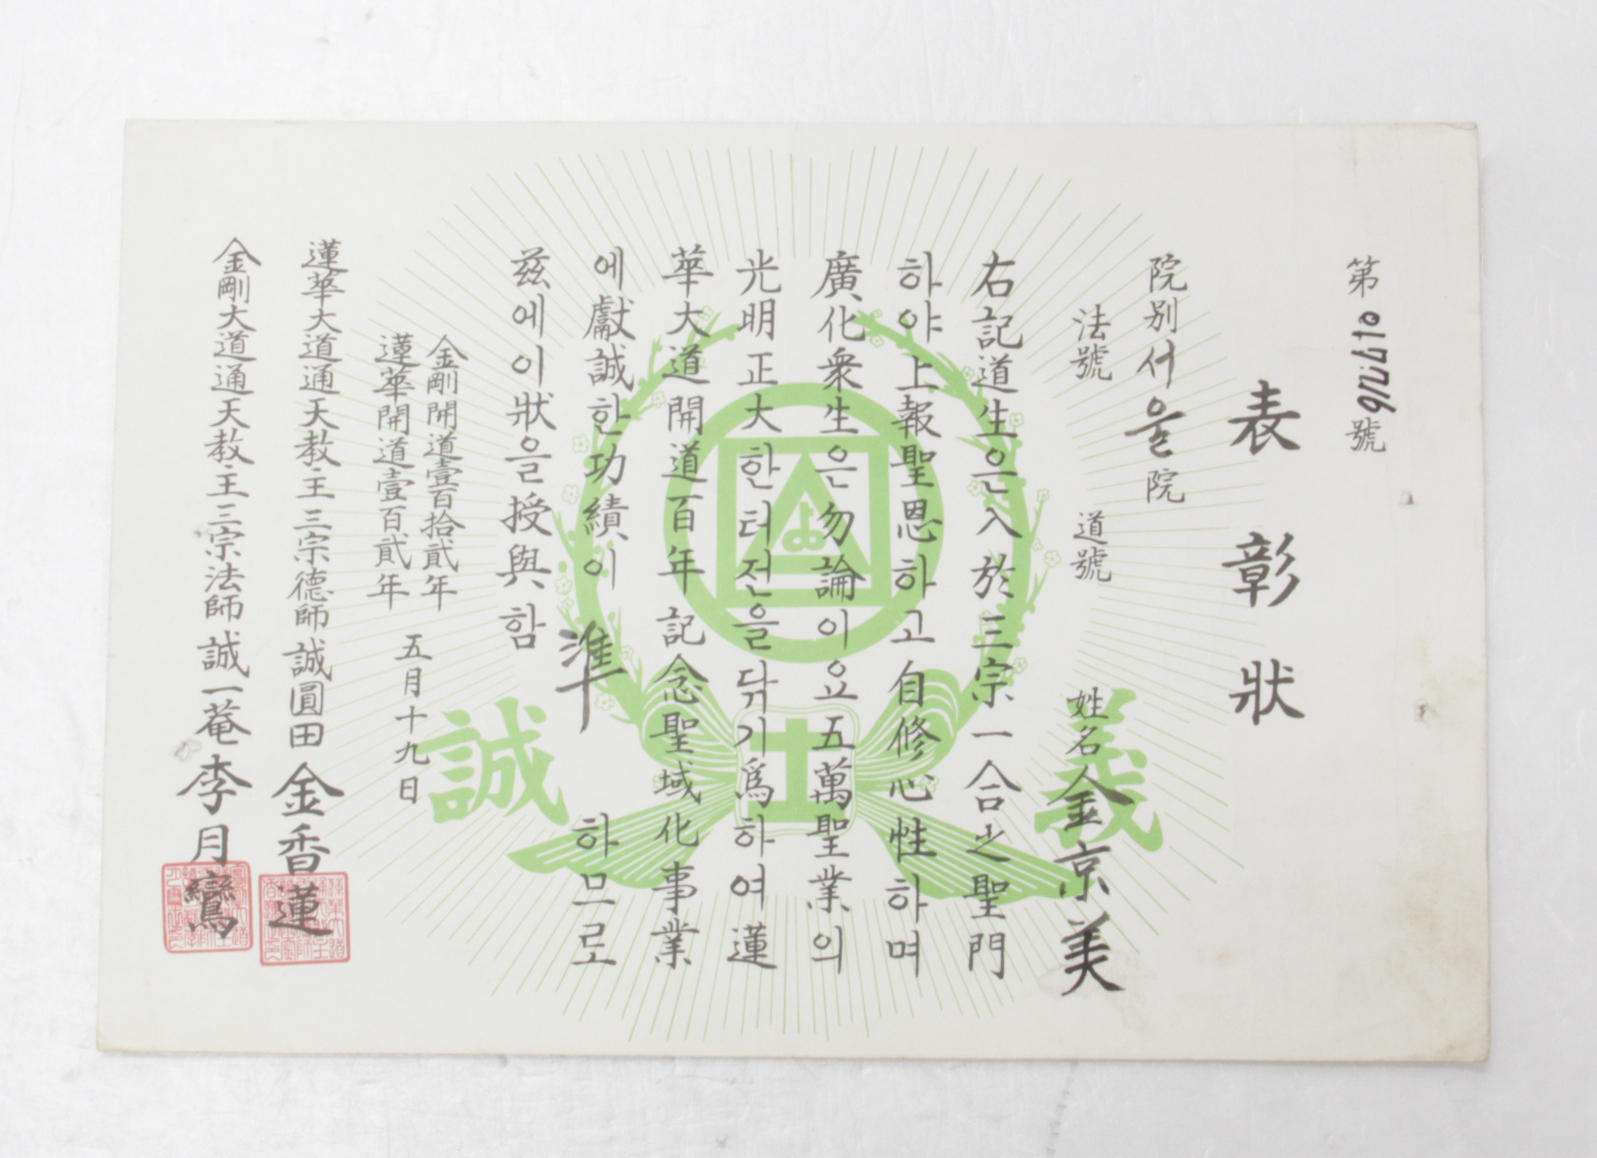 第 號
表彰狀
院別 서울院
法號 道號 姓名 金京美
右記道生은入於三宗一合之聖門
하야上報聖恩하고自修心性하며
廣化衆生은勿論이요五萬聖業의
光明正大한터전을닦기爲하여蓮
華大道開道百年記念聖域化事業
에獻誠한功績이 準 하므로
玆에이狀을授與함
金剛開道壹百拾貳年
蓮華開道壹百貳年
五月十九日
蓮華大道通天敎主三宗德師誠圓田金香蓮
金剛大道通天敎主三宗法師誠一菴李月鸞
誠 義